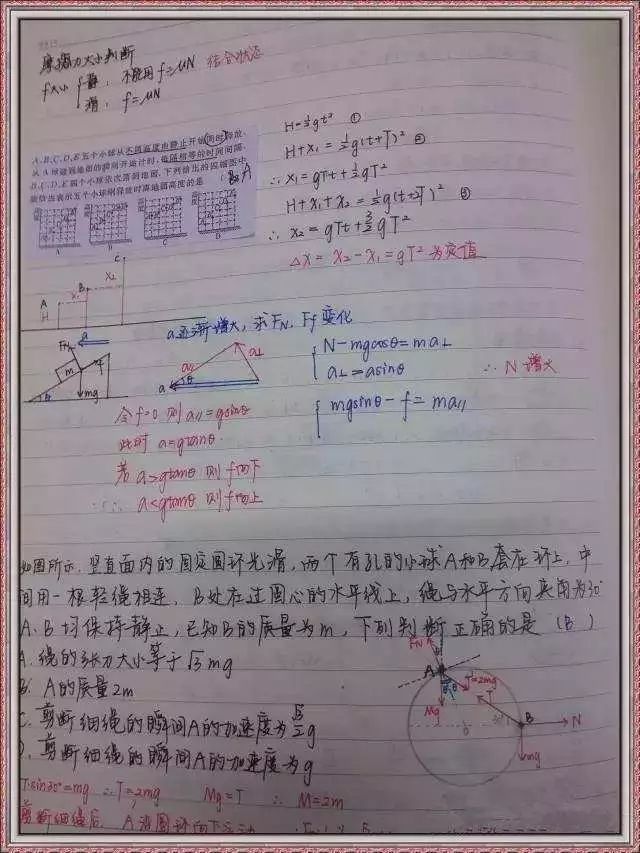 摩擦力大小判断
f大小 f静：不能用f=μN 结合状态
滑：f=μN
A、B、C、D、E五个小球从不同高度由静止开始同时释放,
从A球碰到地面的瞬间开始计时,每隔相等的时间间隔,
B、C、D、E四个小球依次落到地面.下列给出的四幅图中,
能恰当表示五个小球刚释放时离地面高度的是 A
A B C D
H=½gt² ①
H+x₁=½g(t+T)² ②
∴ x₁=gTt+½gT²
H+x₁+x₂=½g(t+2T)² ③
∴ x₂=gTt+3/2gT²
Δx=x₂-x₁=gT² 为定值
C
A x₁ B x₂
H
a逐渐增大，求FN、Ff变化
FN a f m mg θ
a⊥ a∥ a θ
N-mgcosθ=ma⊥
a⊥=asinθ ∴ N增大
mgsinθ-f=ma∥
令f=0 则a∥=gsinθ
此时 a=gtanθ
若a>gtanθ 则f向下
a<gtanθ 则f向上
如图所示，竖直面内的固定圆环光滑，两个有孔的小球A和B套在环上，中
间用一根轻绳相连，B处在过圆心的水平线上，绳与水平方向夹角为30°
A、B均保持静止，已知B的质量为m，下列判断正确的是（B）
A. 绳的张力大小等于√3mg
B. A的质量2m
C. 剪断细绳的瞬间A的加速度为√3/2g
D. 剪断细绳的瞬间A的加速度为g
FN A T=2mg T Mg 30° B N mg
T·sin30°=mg ∴T=2mg Mg=T ∴ M=2m
剪断细绳后，A沿圆环向下运动